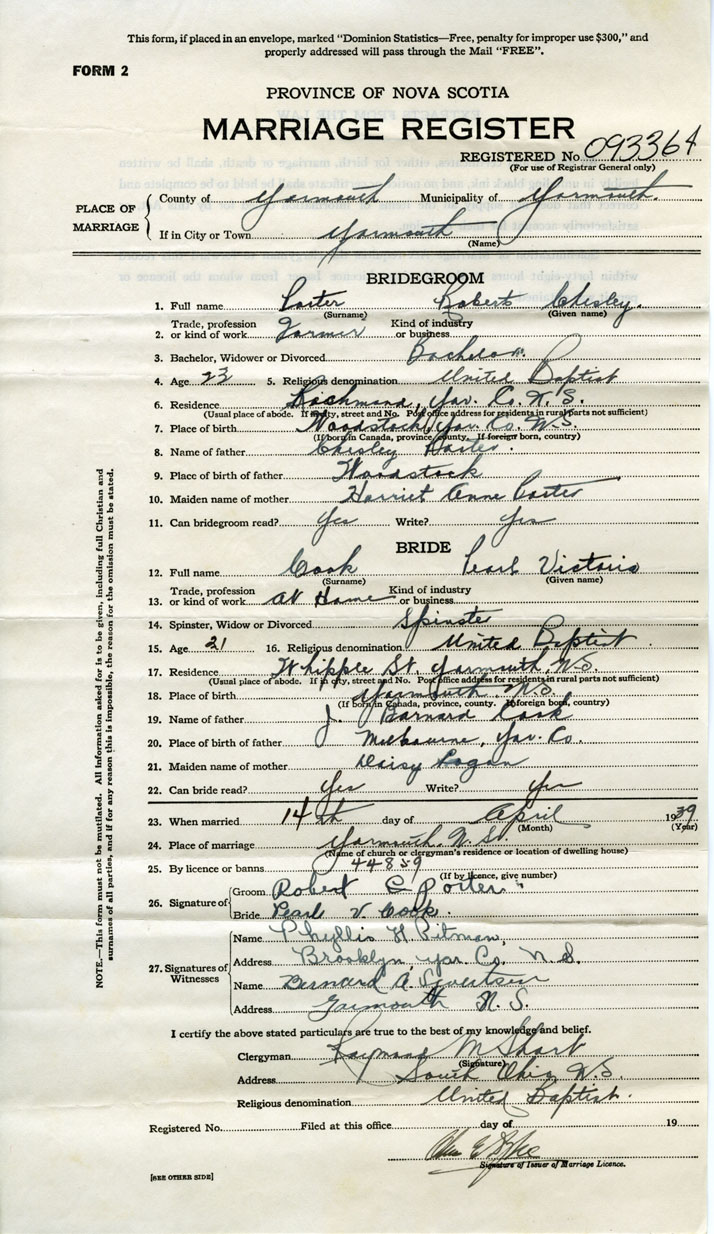 This form, if placed in an envelope, marked “Dominion Statistics—Free, penalty for improper use $300,” and
properly addressed will pass through the Mail “FREE”.
FORM 2
PROVINCE OF NOVA SCOTIA
MARRIAGE REGISTER
REGISTERED No. 093364
(For use of Registrar General only)
PLACE OF MARRIAGE
County of Yarmouth Municipality of Yarmouth.
If in City or Town Yarmouth
(Name)
BRIDEGROOM
1. Full name Porter Robert Chesley.
(Surname) (Given name)
2. Trade, profession or kind of work Farmer Kind of industry or business
3. Bachelor, Widower or Divorced Bachelor.
4. Age 23 5. Religious denomination United Baptist
6. Residence Richmond, Yar. Co. N.S.
(Usual place of abode. If in city, street and No. Post office address for residents in rural parts not sufficient)
7. Place of birth Woodstock, Yar. Co. N.S.
(If born in Canada, province, county. If foreign born, country)
8. Name of father Chesley Porter.
9. Place of birth of father Woodstock
10. Maiden name of mother Harriet Anne Porter
11. Can bridegroom read? Yes Write? Yes
BRIDE
12. Full name Cook Pearl Victoria
(Surname) (Given name)
13. Trade, profession or kind of work At Home Kind of industry or business
14. Spinster, Widow or Divorced Spinster
15. Age 21 16. Religious denomination United Baptist.
17. Residence Whipple St. Yarmouth, N.S.
(Usual place of abode. If in city, street and No. Post office address for residents in rural parts not sufficient)
18. Place of birth Yarmouth N.S.
(If born in Canada, province, county. If foreign born, country)
19. Name of father J. Barnard Cook
20. Place of birth of father Melbourne, Yar. Co.
21. Maiden name of mother Daisy Rogan
22. Can bride read? Yes Write? Yes
23. When married 14th day of April 1939
(Month) (Year)
24. Place of marriage Yarmouth, N.S.
(Name of church or clergyman's residence or location of dwelling house)
25. By licence or banns 44859
(If by licence, give number)
26. Signature of
Groom Robert C Porter.
Bride Pearl V. Cook.
27. Signatures of Witnesses
Name Phyllis H Pitman,
Address Brooklyn, Yar. Co. N.S.
Name Bernard A.
Address Yarmouth N.S.
I certify the above stated particulars are true to the best of my knowledge and belief.
Clergyman Raymond M Short
(Signature)
Address South Ohio N.S.
Religious denomination United Baptist.
Registered No. Filed at this office day of 19
Signature of Issuer of Marriage Licence.
[SEE OTHER SIDE]
NOTE.—This form must not be mutilated. All information asked for is to be given, including full Christian and
surnames of all parties, and if for any reason this is impossible, the reason for the omission must be stated.